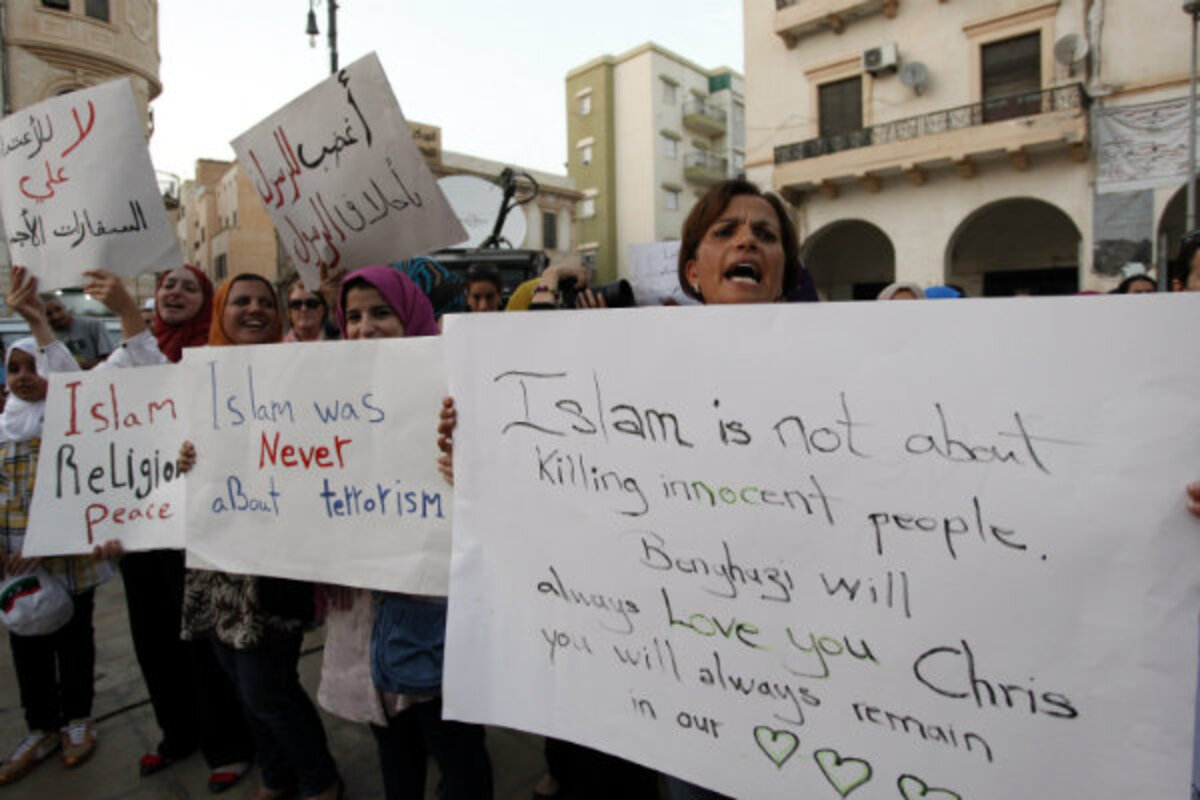 لا للأعتداء
على
السفارات الأجنبية
أغضب للرسول
بأخلاق الرسول
Islam
Religion
peace
Islam was
Never
aBout terrorism
Islam is not about
Killing innocent people.
Benghazi will
always Love you Chris
you will always remain
in our